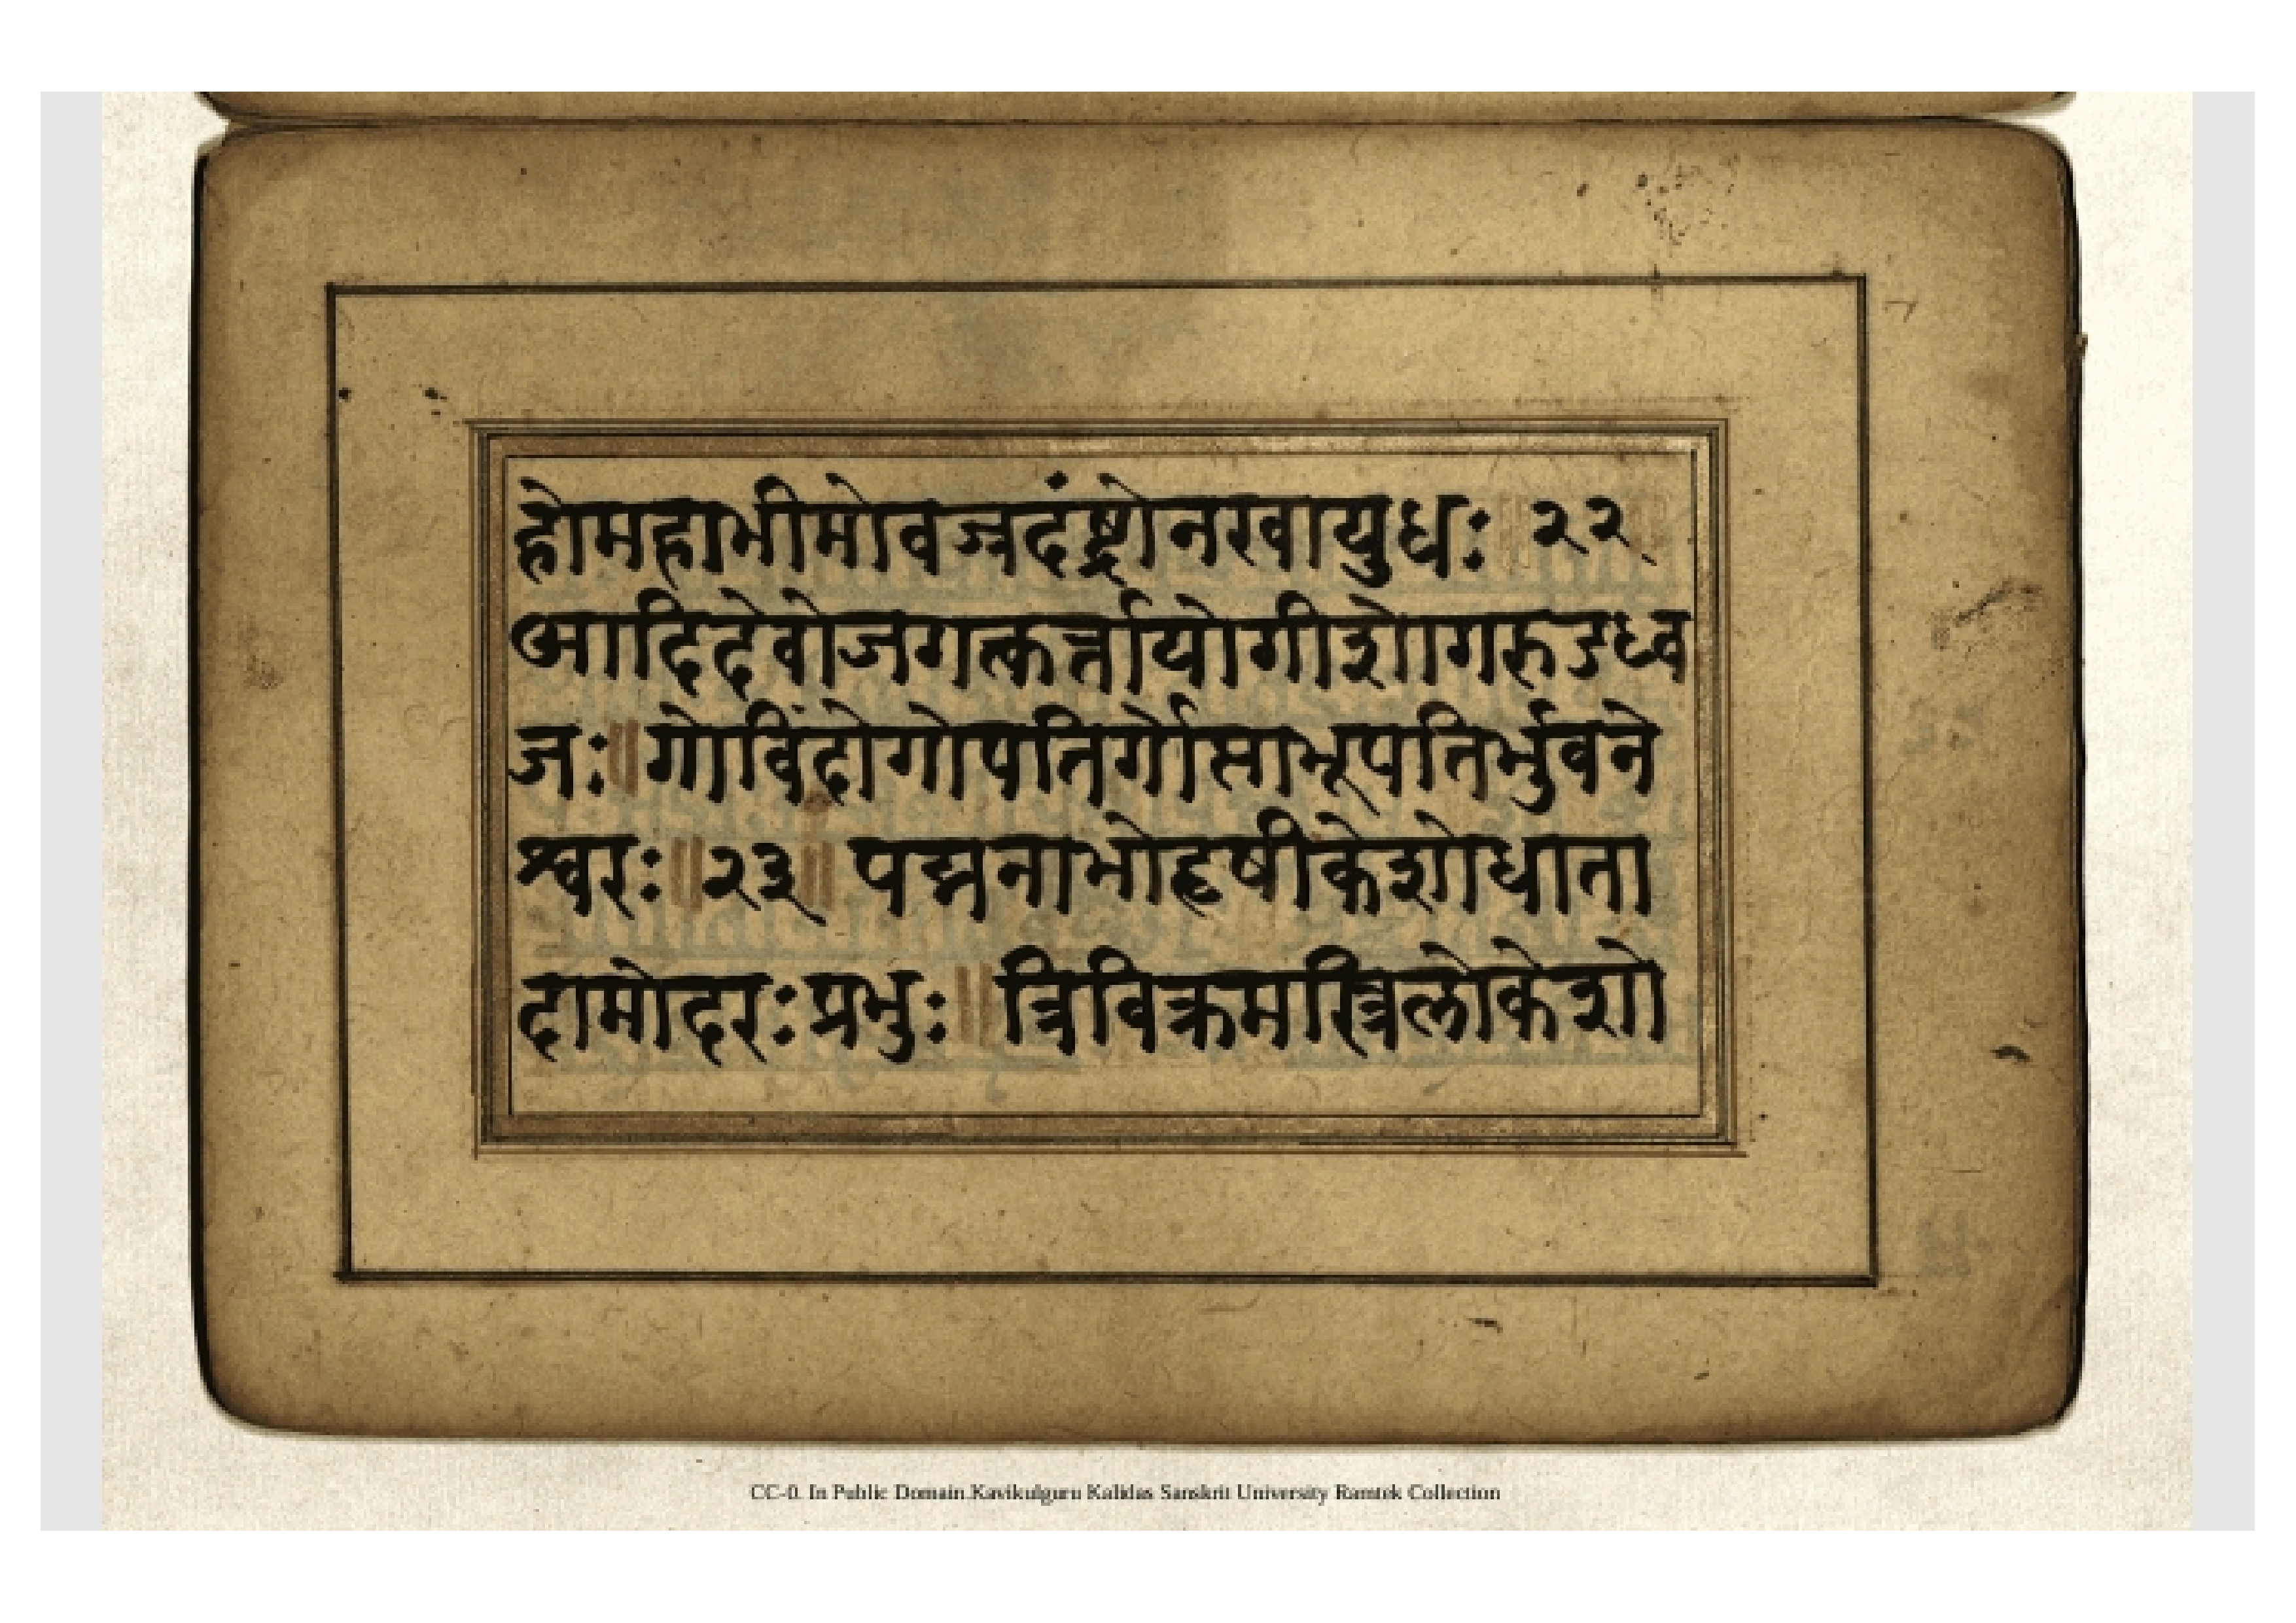 होमहाभीमोवज्रदंष्ट्रोनखायुधः ॥ २२ ॥
आदिदेवोजगत्कर्त्तायोगीशोगरुडध्व
जः ॥ गोविंदोगोपतिर्गोप्ताभूपतिर्भुवने
श्वरः ॥ २३ ॥ पद्मनाभोहृषीकेशोधाता
दामोदरः प्रभुः ॥ त्रिविक्रमस्त्रिलोकेशो
CC-0. In Public Domain.Kavikulguru Kalidas Sanskrit University Ramtek Collection